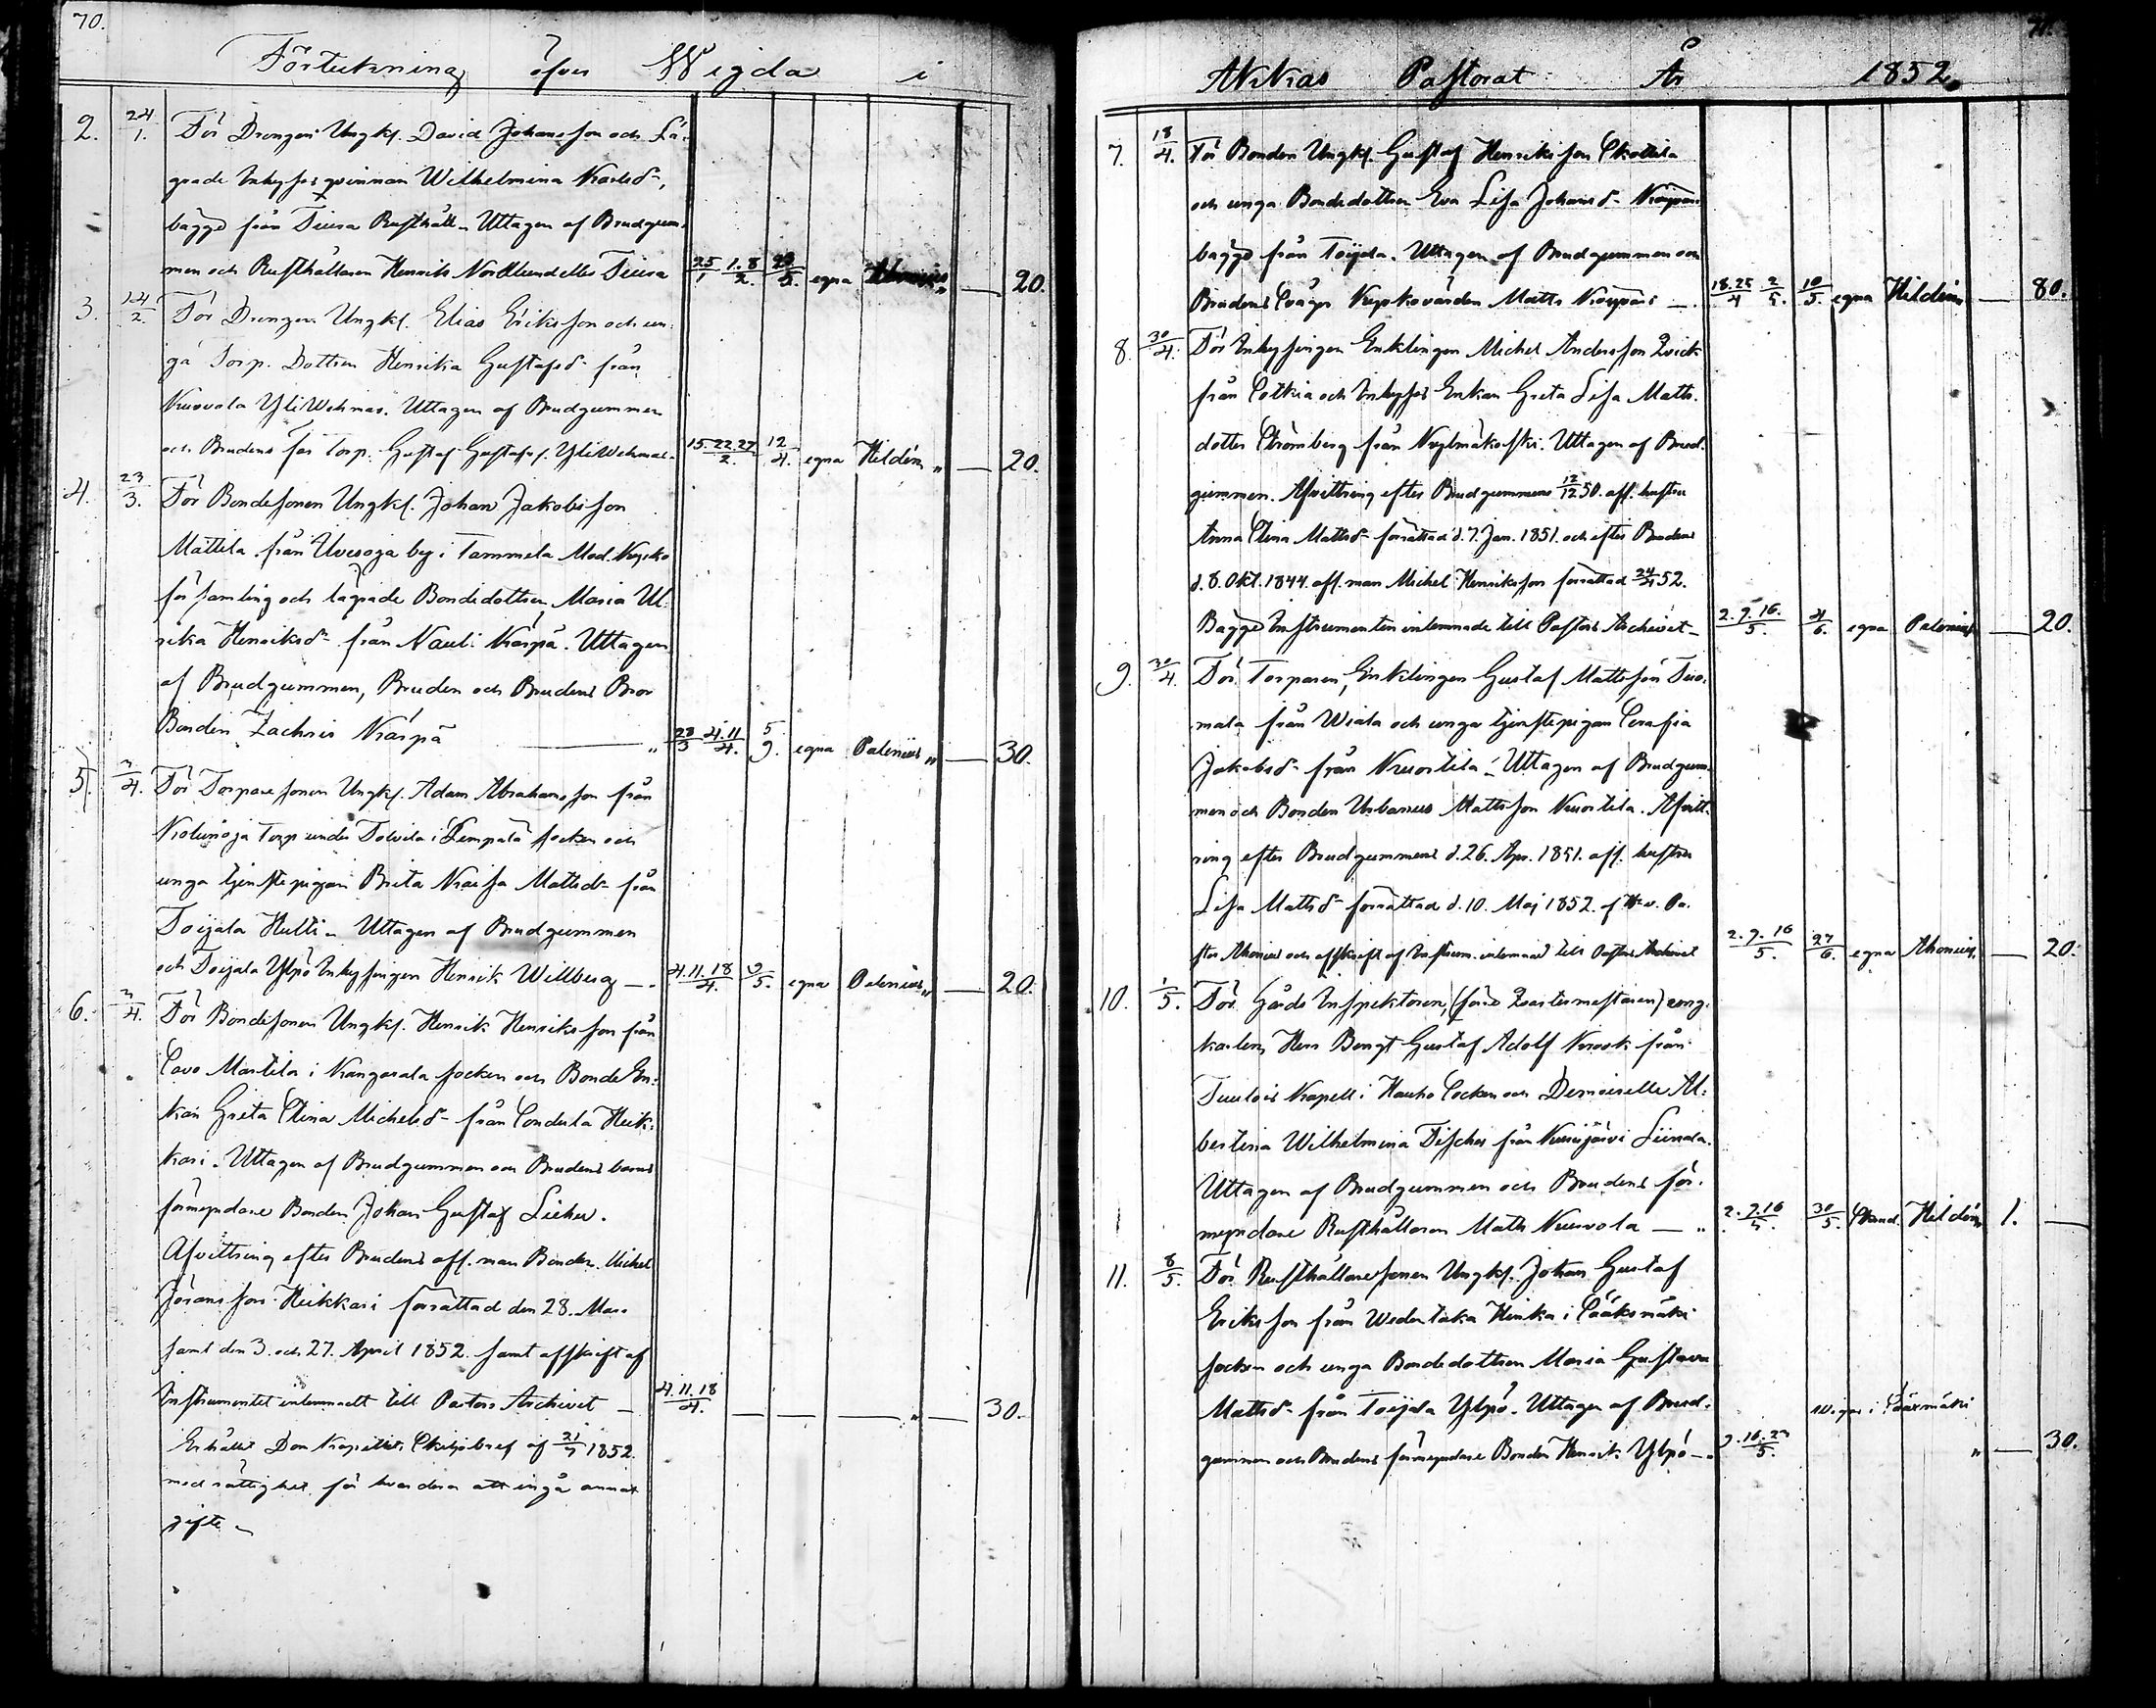 70.
Förteckning öfver Wigda i
2. 24/1. För Drengen Ungk. David Johansson och Lä-
grade Inhysesqvinnan Wilhelmina Karlsd-,
bägge från Tiura Rusthåll. Uttagen af Brudgum-
men och Rusthållaren Henrik Nordlund eller Tiura 25/1 1.8/2. 20/5. egna 20.
3. 14/2. För Drengen Ungk. Elias Eriksson och un-
ga Torp. Dottren Henrika Gustafsd- från
Kurvola YliWehmas. Uttagen af Brudgummen
och Brudens far Torp. Gustaf Gustafss. YliWehmas. 15.22.27/2. 12/4. egna Hildén „ — 20.
4. 23/3. För Bondesonen Ungk. Johan Jakobsson
Mattila från by i Tammela Mod. Kyrko
församling och lägrade Bondedottren Maria Ul-
rika Henriksd- från Nauli Kärpä. Uttagen
af Brudgummen, Bruden och Brudens Bror
Bonden Zachris Kärpä — „ 28/3 4.11/4. 5/9. egna Palenius „ — 30.
5. 3/4. För Torparesonen Ungk. Adam Abrahamsson från
Kolunoja Torp under Tolvila i Lempälä socken och
unga tjenstepigan Brita Kaisa Mattsd- från
Toijala Hulti. Uttagen af Brudgummen
och Toijala Ylpö Inhysingen Henrik Willberg — 4.11.18/4. 9/5. egna Palenius „ — 20.
6. 3/4. För Bondesonen Ungk. Henrik Henriksson från
Savo Marttila i Kangasala socken och Bonde En-
kan Greta Stina Michelsd- från Sondula Heik-
kari. Uttagen af Brudgummen och Brudens barns
förmyndare Bonden Johan Gustaf
Afvittring efter Brudens afl. man Bonden Michel
Jöransson Heikkari förrättad den 28. Mars
samt den 3. och 27. April 1852. samt afskrift af
Instrumentet inlemnadt till Pastors Archivet — 4.11.18/4. — — — „ — 30.
Erhållit Dom Kapitlets Skiljobref af 21/7 1852.
med rättighet för hvardera att ingå annat
gifte —
71.
Akkas Pastorat År 1852.
7. 18/4. För Bonden Ungk. Gustaf Henriksson Skattila
och unga Bondedottren Eva Lisa Johansd- Kärpäri
bägge från Toijala. Uttagen af Brudgummen och
Brudens Svåger Kyrkovärden Matts Kärpäri — 18.25/4 2/5. 10/5. egna Hildén — 80.
8. 30/4. För Inhysingen Enklingen Michel Andersson Qvick
från Sotkia och Inhyses Enkan Greta Lisa Matts-
dotter Strömberg från Kylmäkoski. Uttagen af Brud-
gummen. Afvittring efter Brudgummens 12/12 50. afl. hustru
Anna Stina Mattsd- förrättad d. 7. Jan. 1851. och efter Brudens
d. 8. Okt. 1844. afl. man Michel Henriksson förrättad 24/4 52.
Bägge Instrumenten inlemnade till Pastors Archivet — 2.9.16./5. 4/6. egna Palenius — 20.
9. 30/4. För Torparen, Enklingen Gustaf Mattsson Tuo-
mala från Wiala och unga tjenstepigan Serafia
Jakobsd- från Kuortila. Uttagen af Brudgum-
men och Bonden Urbanus Mattsson Kuortila. Afvitt-
ring efter Brudgummens d. 26. Apr. 1851. afl. hustru
Lisa Mattsd- förrättad d. 10. Maj 1852. af Pa-
stor Ahonius och afskrift af Instrum. inlemnad till Pastors Archivet 2.9.16/5. 27/6. egna Ahonius — 20.
10. 1/5. För Gårds Inspektoren, (förre Qvartermästaren) ung-
karlen Herr Bengt Gustaf Adolf Krook från
Tuulois Kapell i Hauho Socken och Demoiselle Al-
bertina Wilhelmina Fischer från Kurisjärvi Liuvala.
Uttagen af Brudgummen och Brudens för-
myndare Rusthållaren Matts Kurvola — „ 2.9.16/5. 30/5. Stånd. Hildén 1. —
11. 8/5. För Rusthållaresonen Ungk. Johan Gustaf
Eriksson från Wedentaka Hinka i Sääksmäki
socken och unga Bondedottren Maria Gustava
Mattsd- från Toijala Ylpö. Uttagen af Brud- Wigde i Sääxmäki
gummen och Brudens förmyndare Bonden Henrik Ylpö — „ 9.16.23/5. „ — 30.